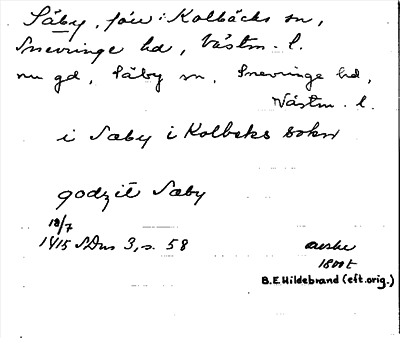 Säby, förr i Kolbäcks sn,
Snevringe hd, Västm. l.
nu gd, Säby sn, Snevringe hd,
Västm. l.
i Sæby i Kolbeks sokn
godzit Sæby
18/7
1415 SDns 3, s. 58
avskr
1800t
B.E.Hildebrand (eft.orig.)